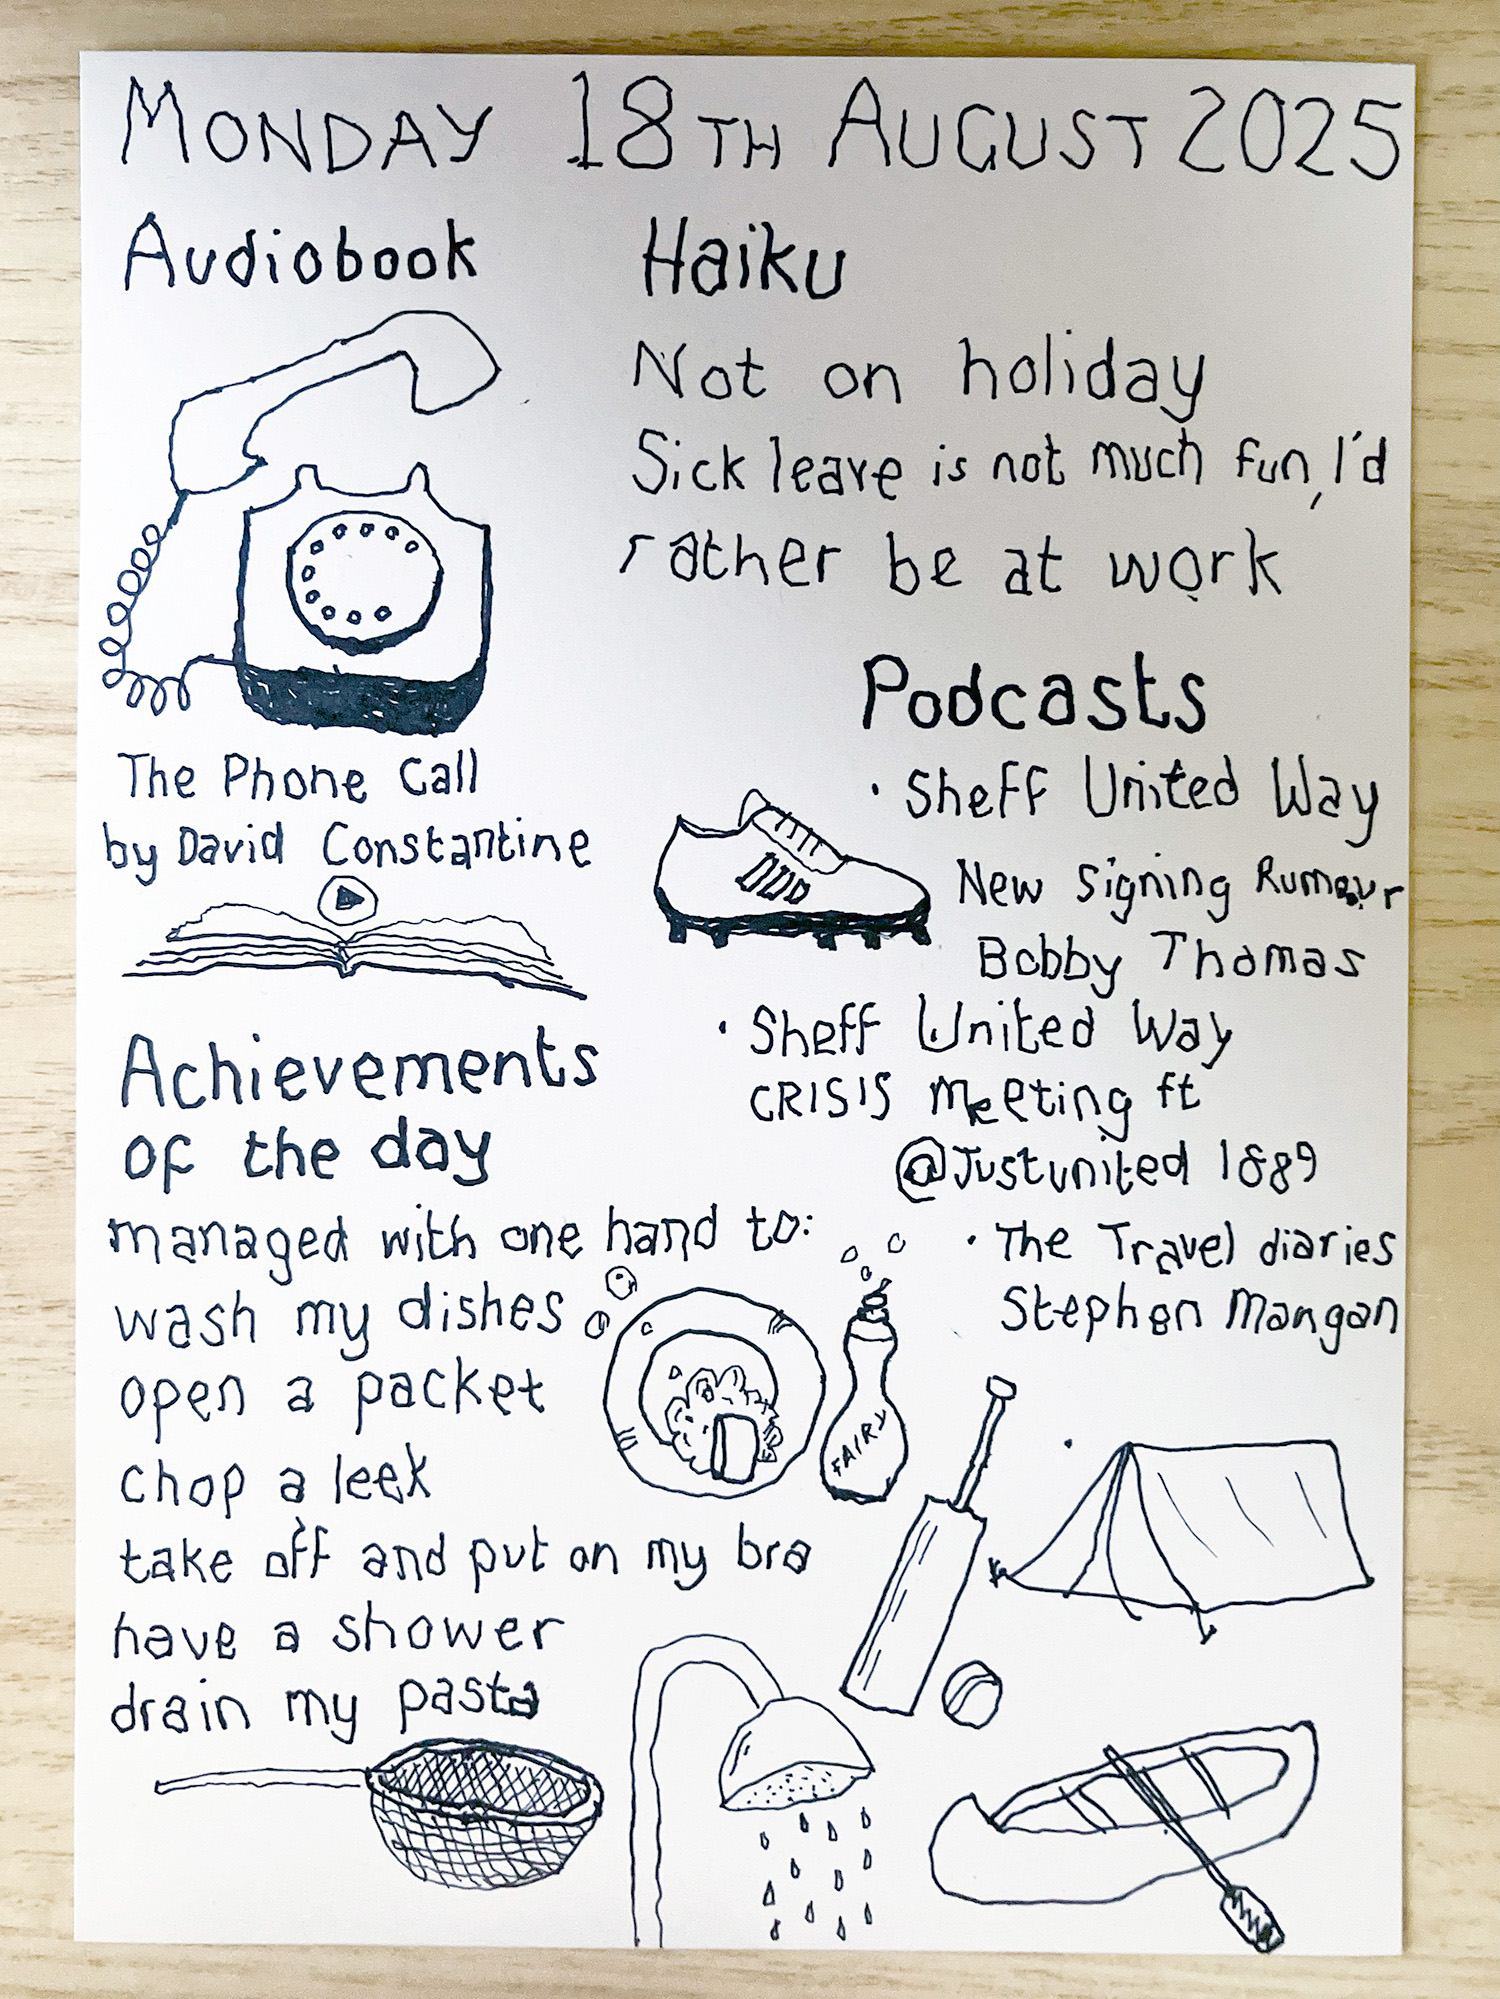 MONDAY 18TH AUGUST 2025
Audiobook
The Phone Call
by David Constantine
Haiku
Not on holiday
Sick leave is not much fun, I'd
rather be at work
Podcasts
• Sheff United Way
New Signing Rumour
Bobby Thomas
• Sheff United Way
CRISIS Meeting ft
@Justunited 1889
• The Travel diaries
Stephen Mangan
Achievements
of the day
managed with one hand to:
wash my dishes
open a packet
chop a leek
take off and put on my bra
have a shower
drain my pasta
FAIRY